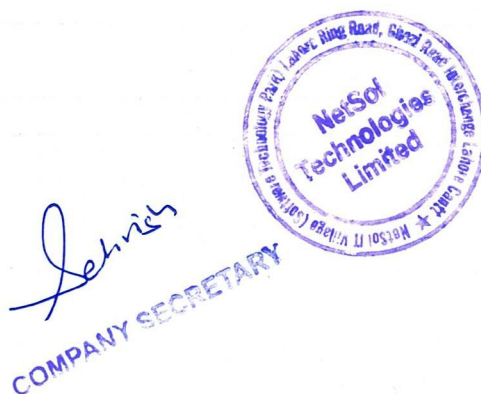 NetSol IT Village (Software Technology Park) Lahore Ring Road, Ghazi Road Interchange Lahore Cantt ★
NetSol
Technologies
Limited
Sehrish
COMPANY SECRETARY